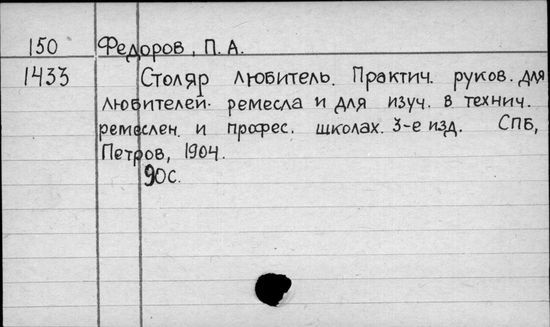 150 Федоров, П. А.
1433 Столяр любитель. Практич. руков. для
любителей ремесла и для изуч. в технич.
ремеслен. и профес. школах. 3-е изд. СПБ,
Петров, 1904.
90с.